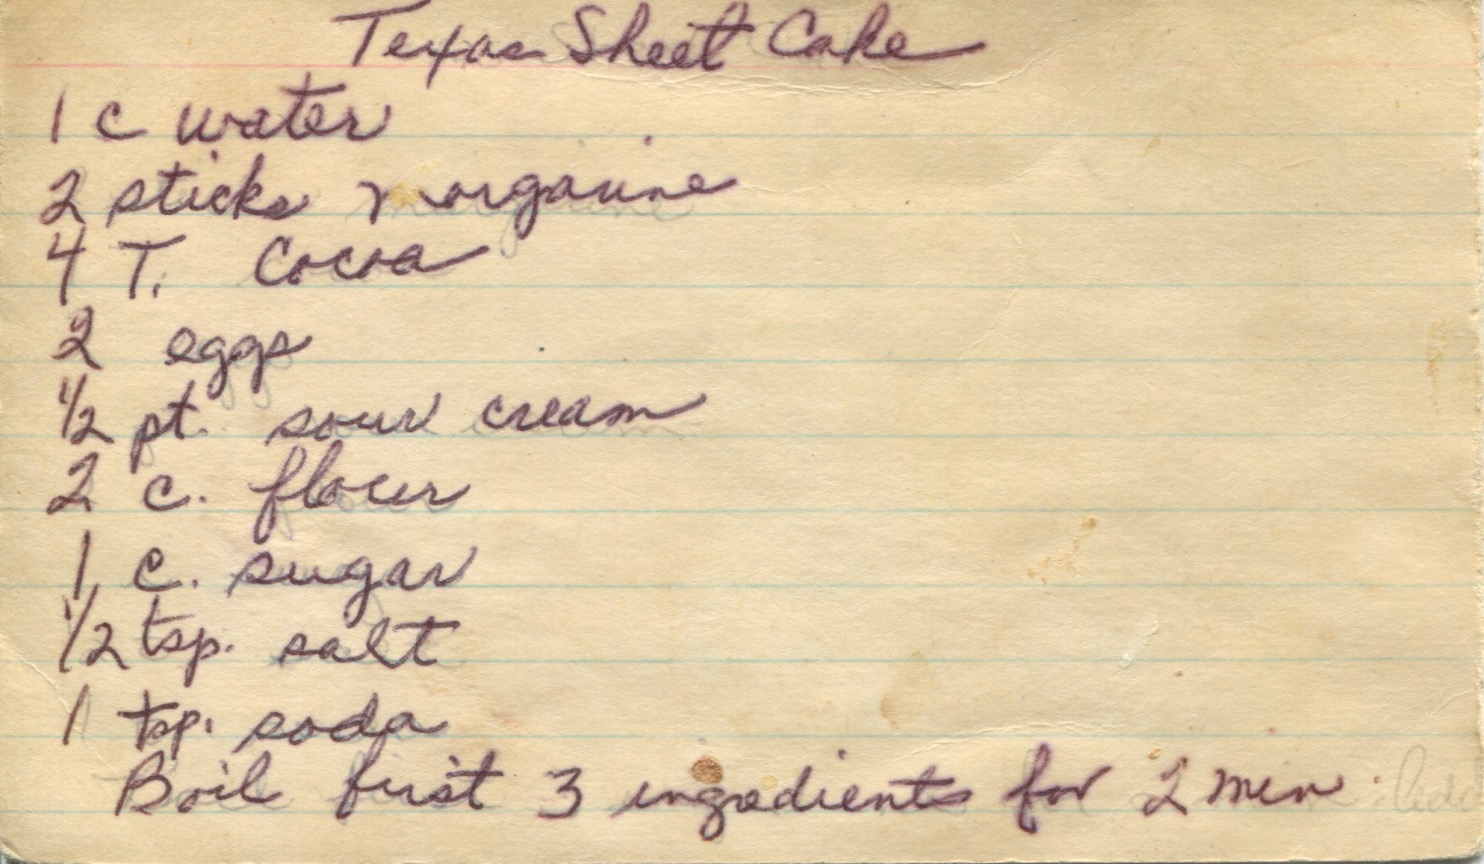 Texas Sheet Cake
1 c water
2 sticks margarine
4 T. Cocoa
2 eggs
1/2 pt. sour cream
2 c. flour
1 c. sugar
1/2 tsp. salt
1 tsp. soda
Boil first 3 ingredients for 2 min.